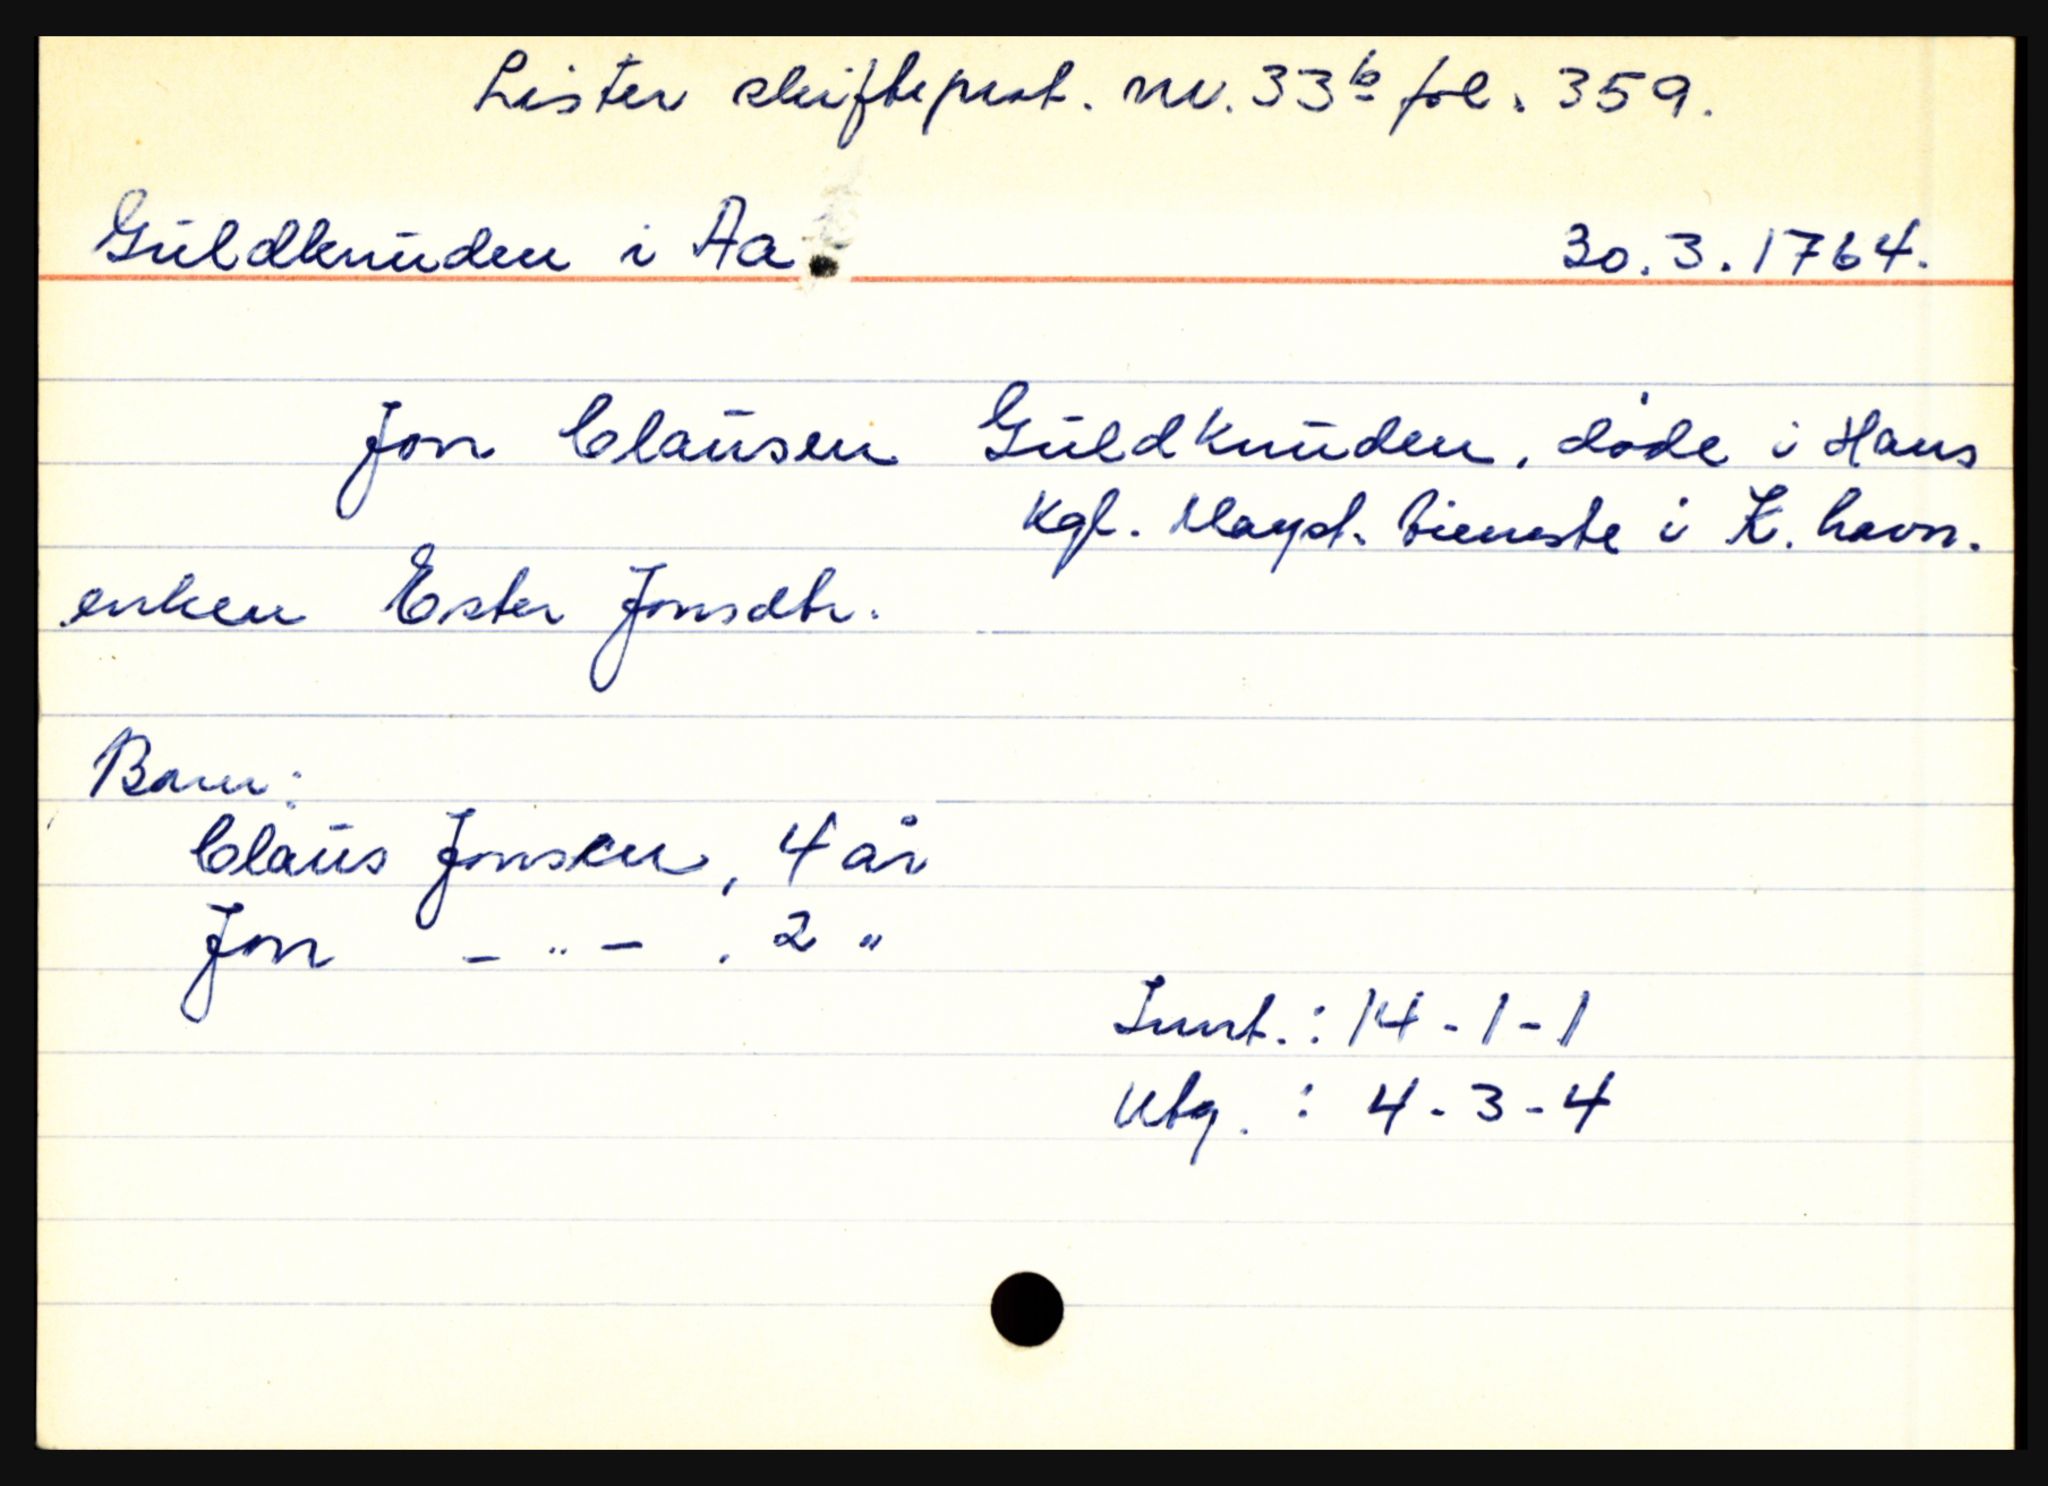 Lister skifteprot. nr. 33b fol. 359.
Guldknuden i Aa
30.3.1764.
Jon Clausen Guldknuden, døde i Hans
Kgl. Mayst. tieneste i K.havn.
enken Ester Jonsdtr.
Barn:
Claus Jonsen, 4 år
Jon - " - , 2 "
Innt.: 14-1-1
Utg. : 4-3-4